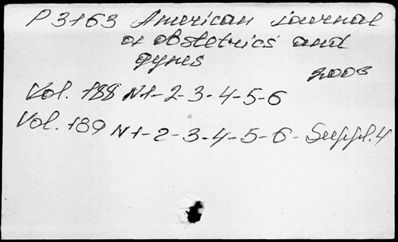 P3163 American journal
of obstetrics and
gynes
2003
Vol. 188 N1-2-3-4-5-6
Vol. 189 N1-2-3-4-5-6-Suppl.4